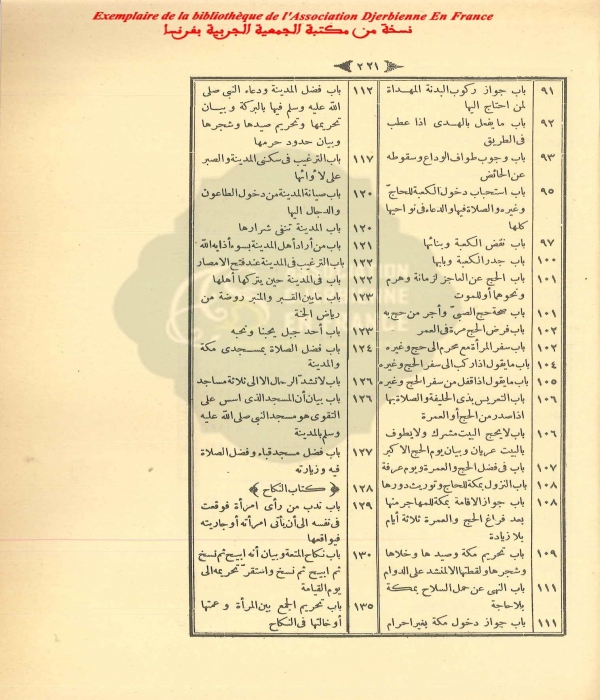 Exemplaire de la bibliothèque de l'Association Djerbienne En France
نسخة من مكتبة الجمعية الجربية بفرنسا
٢٢١
٩١ باب جواز ركوب البدنة المهداة
لمن احتاج اليها
٩٢ باب ما يفعل بالهدى اذا عطب
فى الطريق
٩٣ باب وجوب طواف الوداع وسقوطه
عن الحائض
٩٥ باب استحباب دخول الكعبة للحاجّ
وغيره والصلاة فيها والدعاء فى نواحيها
كلها
٩٧ باب نقض الكعبة وبنائها
١٠٠ باب جدر الكعبة وبابها
١٠١ باب الحج عن العاجز لزمانة وهرم
ونحوهما أو للموت
١٠١ باب صحة حج الصبىّ وأجر من حج به
١٠٢ باب فرض الحج مرة فى العمر
١٠٢ باب سفر المرأة مع محرم الى حج وغيره
١٠٤ باب ما يقول اذا ركب الى سفر الحج وغيره
١٠٥ باب ما يقول اذا قفل من سفر الحج وغيره
١٠٦ باب التعريس بذى الحليفة والصلاة بها
اذا صدر من الحج أو العمرة
١٠٦ باب لا يحج البيت مشرك ولا يطوف
بالبيت عريان وبيان يوم الحج الاكبر
١٠٧ باب فى فضل الحج والعمرة ويوم عرفة
١٠٨ باب النزول بمكة للحاج وتوريث دورها
١٠٨ باب جواز الاقامة بمكة للمهاجر منها
بعد فراغ الحج والعمرة ثلاثة أيام
بلا زيادة
١٠٩ باب تحريم مكة وصيدها وخلاها
وشجرها ولقطتها الا لمنشد على الدوام
١١١ باب النهى عن حمل السلاح بمكة
بلا حاجة
١١١ باب جواز دخول مكة بغير احرام
١١٢ باب فضل المدينة ودعاء النبى صلى
الله عليه وسلم فيها بالبركة وبيان
تحريمها وتحريم صيدها وشجرها
وبيان حدود حرمها
١١٧ باب الترغيب فى سكنى المدينة والصبر
على لأوائها
١٢٠ باب صيانة المدينة من دخول الطاعون
والدجال اليها
١٢٠ باب المدينة تنفى شرارها
١٢١ باب من أراد أهل المدينة بسوء أذابه الله
١٢٢ باب الترغيب فى المدينة عند فتح الامصار
١٢٢ باب فى المدينة حين يتركها أهلها
١٢٣ باب ما بين القبر والمنبر روضة من
رياض الجنة
١٢٣ باب أحد جبل يحبنا ونحبه
١٢٤ باب فضل الصلاة بمسجدى مكة
والمدينة
١٢٦ باب لا تشدّ الرحال الا الى ثلاثة مساجد
١٢٦ باب بيان أن المسجد الذى اسس على
التقوى هو مسجد النبى صلى الله عليه
وسلم بالمدينة
١٢٧ باب فضل مسجد قباء وفضل الصلاة
فيه وزيارته
١٢٨ ﴿ كتاب النكاح ﴾
١٢٩ باب ندب من رأى امرأة فوقعت
فى نفسه الى أن يأتى امرأته أو جاريته
فيواقعها
١٣٠ باب نكاح المتعة وبيان أنه ابيح ثم نسخ
ثم ابيح ثم نسخ واستقرّ تحريمه الى
يوم القيامة
١٣٥ باب تحريم الجمع بين المرأة وعمتها
أو خالتها فى النكاح